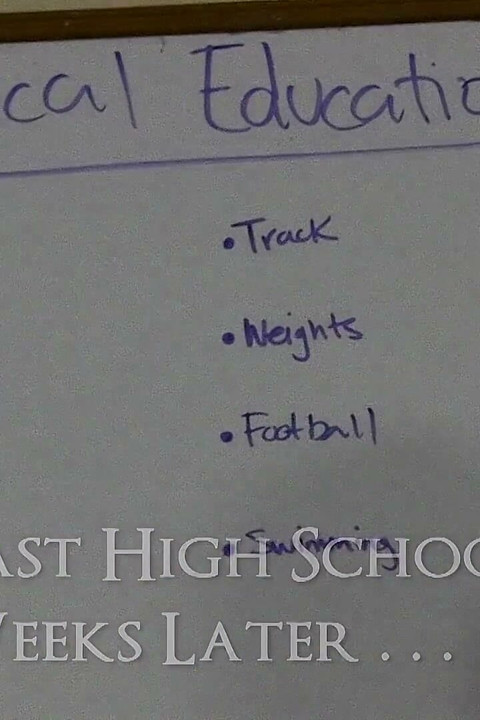 cal Educatio
• Track
• Weights
• Football
• Swimming
AST HIGH SCHOO
WEEKS LATER . . .